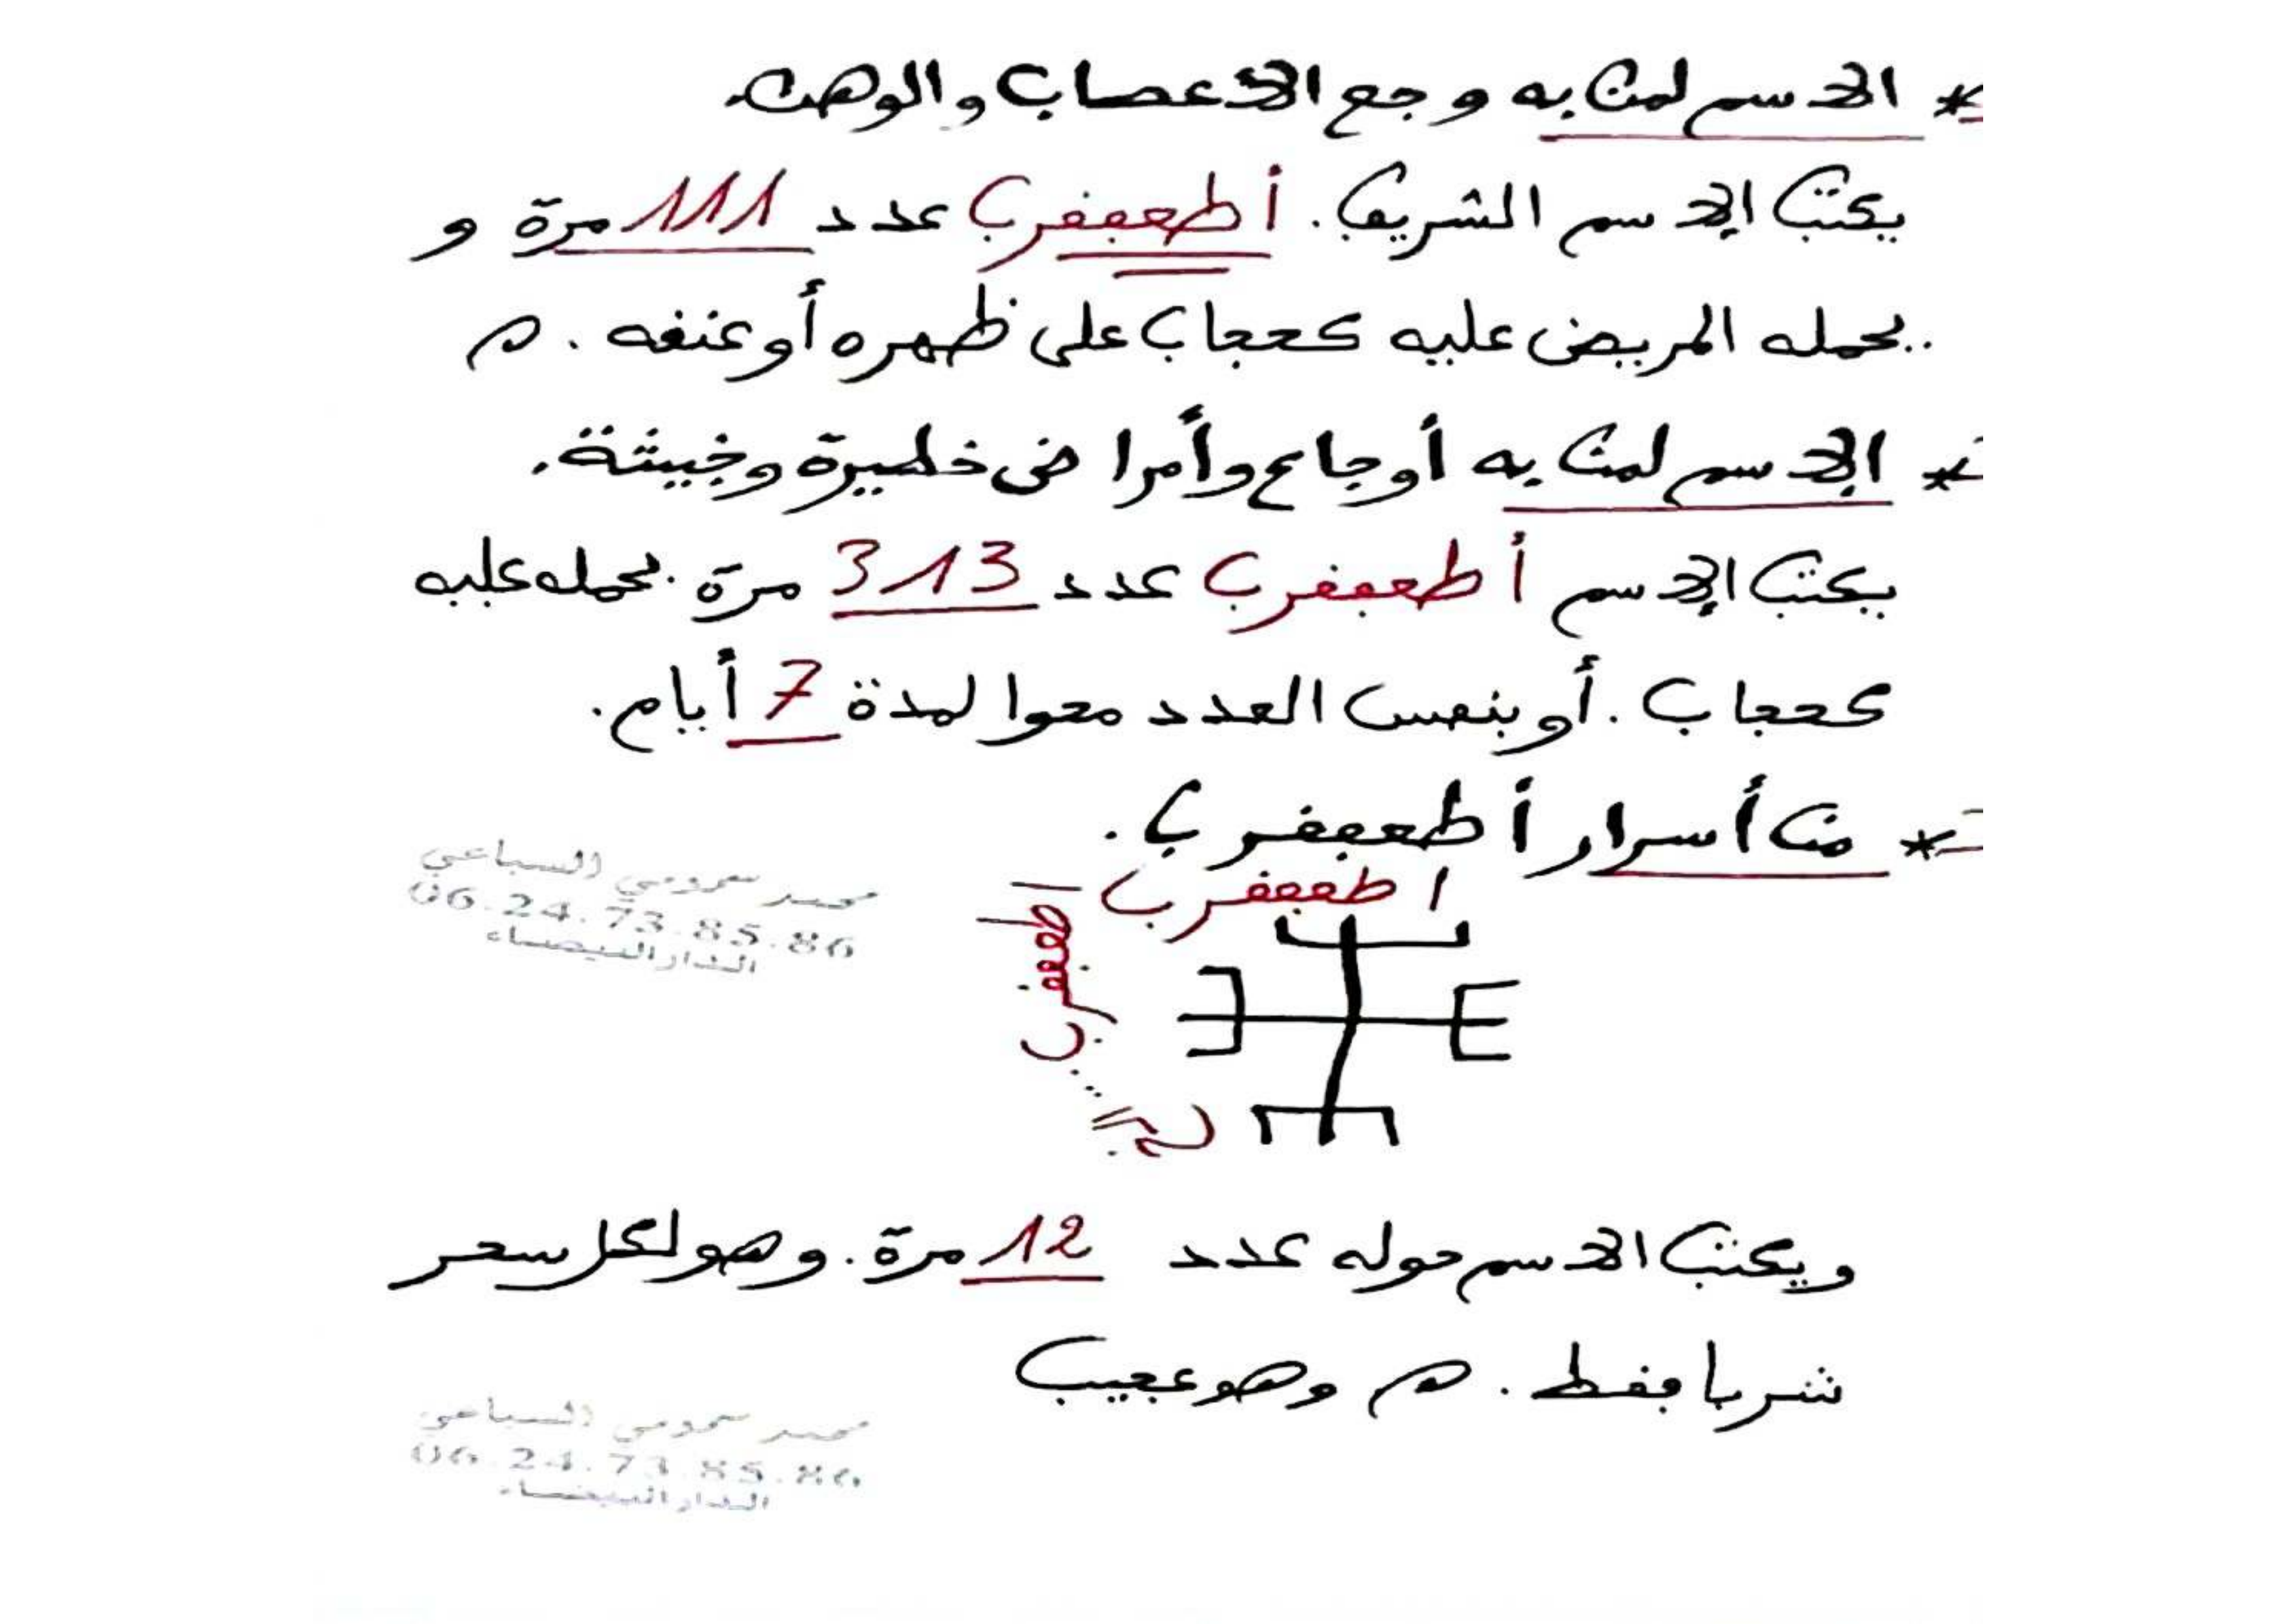 * الاسم لمن به وجع الأعصاب والوهن.
يكتب الاسم الشريف. أطعففرب عدد 111 مرة و
يحمله المريض عليه كحجاب على ظهره أو عنقه. م
* الاسم لمن به أوجاع وأمراض خطيرة وخبيثة.
يكتب الاسم أطعففرب عدد 313 مرة. يحمله عليه
كحجاب. أو بنفس العدد محوا لمدة 7 أيام.
* من أسرار أطعففرب.
اطعففرب
محمد سمومي السباعي
06.24.73.85.86
الدار البيضاء
ويكتب الاسم حوله عدد 12 مرة. وهو لكل سحر
شربا فقط. م وهو عجيب
محمد سمومي السباعي
06.24.73.85.86
الدار البيضاء